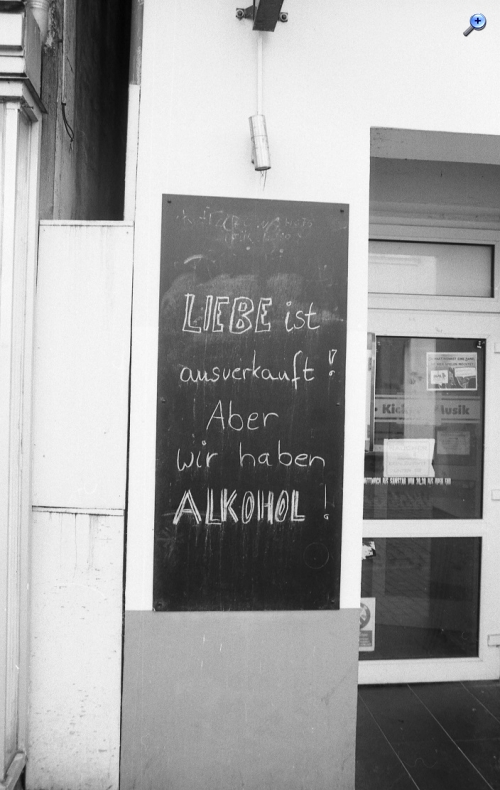 LIEBE ist
ausverkauft!
Aber
wir haben
ALKOHOL!
Musik